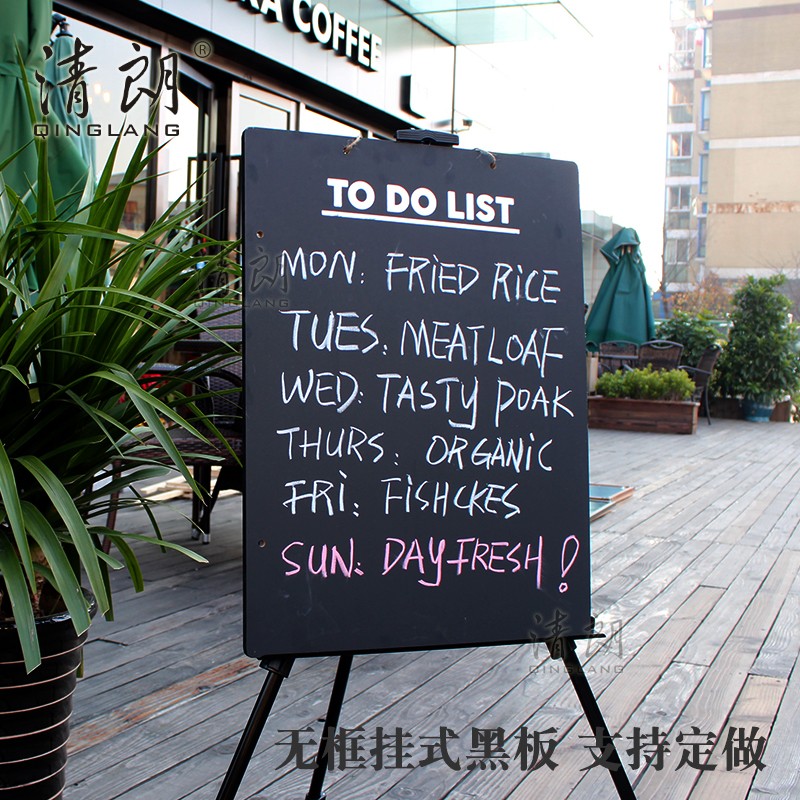 COFFEE
清朗®
QINGLANG
TO DO LIST
MON: FRiED RiCE
清朗
QINGLANG
TUES: MEATLOAF
WED: TASTY POAK
THURS: ORGANiC
FRi: FiSHCKES
SUN: DAYFRESH!
清朗
QINGLANG
无框挂式黑板 支持定做